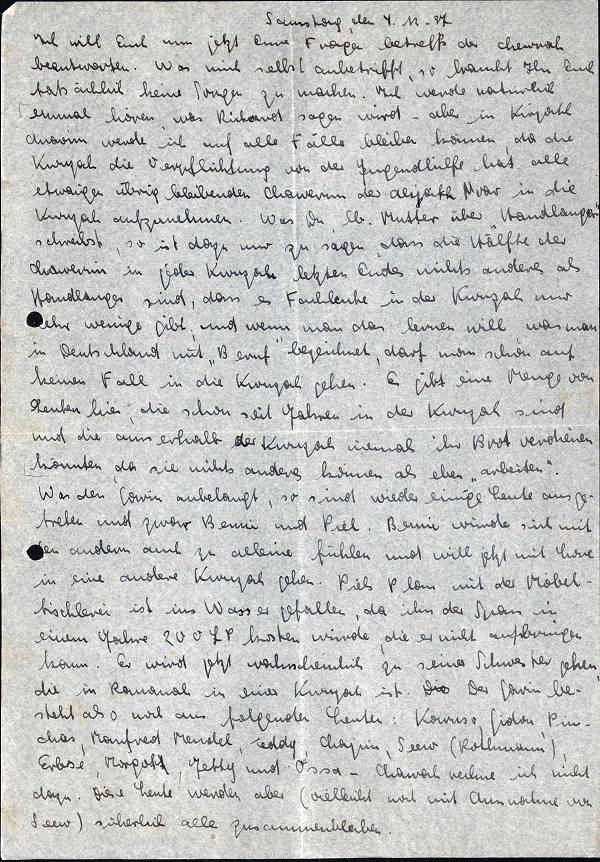 Samstag, den 4.12.37
Ich will Euch nun jetzt Eure Fragen betreffs der chewrah
beantworten. Was mich selbst anbetrifft, so braucht Ihr Euch
tatsächlich keine Sorgen zu machen. Ich werde natürlich
einmal hören, was Richard sagen wird - aber in Kwzah
werde ich auf alle Fälle bleiben können, da die
Kwuzah die Verpflichtung von der Jugendhilfe hat alle
etwaigen übrig bleibenden Chawerim der in die
Kwuzah aufzunehmen. Was Du, lb. Mutter über "Handlanger"
schreibst, so ist dazu nur zu sagen, dass die Hälfte der
Chawerim in jeder Kwuzah letzten Endes nichts anderes als
Handlanger sind, dass es Fachleute in der Kwuzah nur
sehr wenige gibt, und wenn man das lernen will was man
in Deutschland mit "Beruf" bezeichnet, darf man schon auf
keinen Fall in die Kwuzah gehen. Es gibt eine Menge von
Leuten hier, die schon seit Jahren in der Kwuzah sind
und die ausserhalb der Kwuzah niemals ihr Brot verdienen
könnten, da sie nichts anderes können als eben "arbeiten".
Was den Garin anbelangt, so sind wieder einige Leute ausge-
treten und zwar Benni und Piel. Benni würde sich mit
den andern auch zu alleine fühlen und will jetzt mit
in eine andere Kwuzah gehen. Piels Plan mit der Möbel-
tischlerei ist ins Wasser gefallen, da ihn der Spass in
einem Jahre 20 0 LP kosten würde, die er nicht aufbringen
kann. Er wird jetzt wahrscheinlich zu seiner Schwester gehen,
die in Raanah in einer Kwuzah ist. Der Garin be-
steht also noch aus folgenden Leuten: Karuso, Gidon, Pin-
chas, Manfred Mendel, Teddy, Chajim, Seew (Rothmann),
Erbse, Margot, Jetty und Ossa - Chawah rechne ich nicht
dazu. Diese Leute werden aber (vielleicht noch mit Ausnahme von
Seew) sicherlich alle zusammenbleiben.